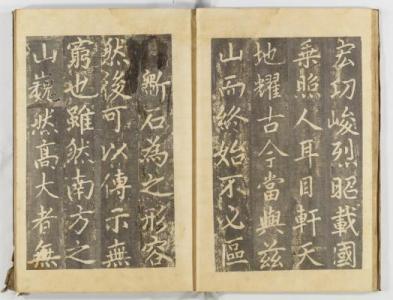 宏功峻烈昭載國
乘照人耳目軒天
地耀古今當與茲
山而終始不必區
斲石為之形容
然後可以傳示無
窮也雖然南方之
山巍然高大者無